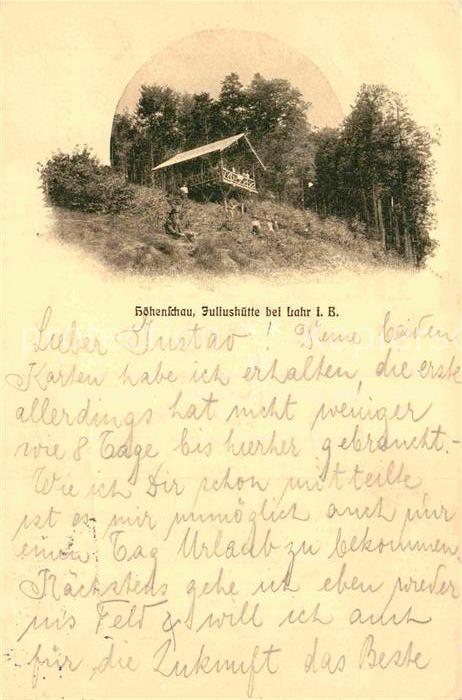 Höhenschau, Juliushütte bei Lahr i. B.
Lieber Gustav! Deine beiden
Karten habe ich erhalten, die erste
allerdings hat nicht weniger
wie 8 Tage bis hierher gebraucht.-
Wie ich Dir schon mitteilte
ist es mir unmöglich auch nur
einen Tag Urlaub zu bekommen.
Nächstens gehe ich eben wieder
ins Feld & will ich auch
für die Zukunft das Beste